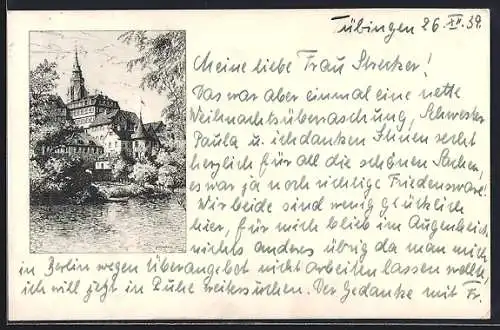 Tübingen 26.XII.39.
Meine liebe Frau Strecker!
Das war aber einmal eine nette
Weihnachtsüberraschung, Schwester
Paula u. ich danken Ihnen recht
herzlich für all die schönen Sachen,
es war ja noch richtige Friedensware!
Wir beide sind wenig glücklich
hier, für mich blieb im Augenblick
nichts anderes übrig da man mich
in Berlin wegen Überangebot nicht arbeiten lassen wollte,
ich will jetzt in Ruhe weitersuchen. Der Gedanke mit Fr.